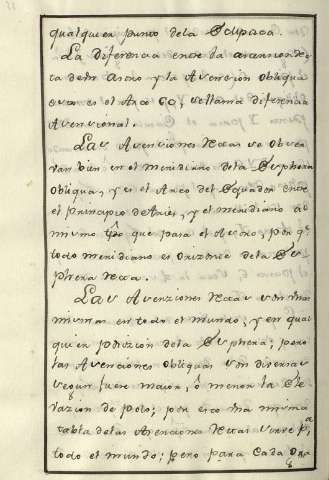 qualquier punto dela Eclipsca.
La diferencia entre la ascension Rec
ta de un Astro y la Ascension obliqua
es el Arco CO, se llama diferencia
Ascensional.
Las Ascenciones Rectas se obser
van bien en el meridiano dela Esphera
obliqua, y es el Arco del Equador entre
el principio de Aries, y el meridiano al
mismo tpo que pasa el Astro, por q
todo meridiano es Orizonte dela Es
phera Recta.
Las Ascenciones Rectas son las
mismas en todo el mundo, y en qual
quier posizion dela Esphera; pero
las Ascenciones obliquas son diversas
segun fuere maior, ô menor la Ele
vazion de Polo; por esso una misma
tabla delas Ascenciones Rectas sirve pa
todo el mundo; pero para Cada